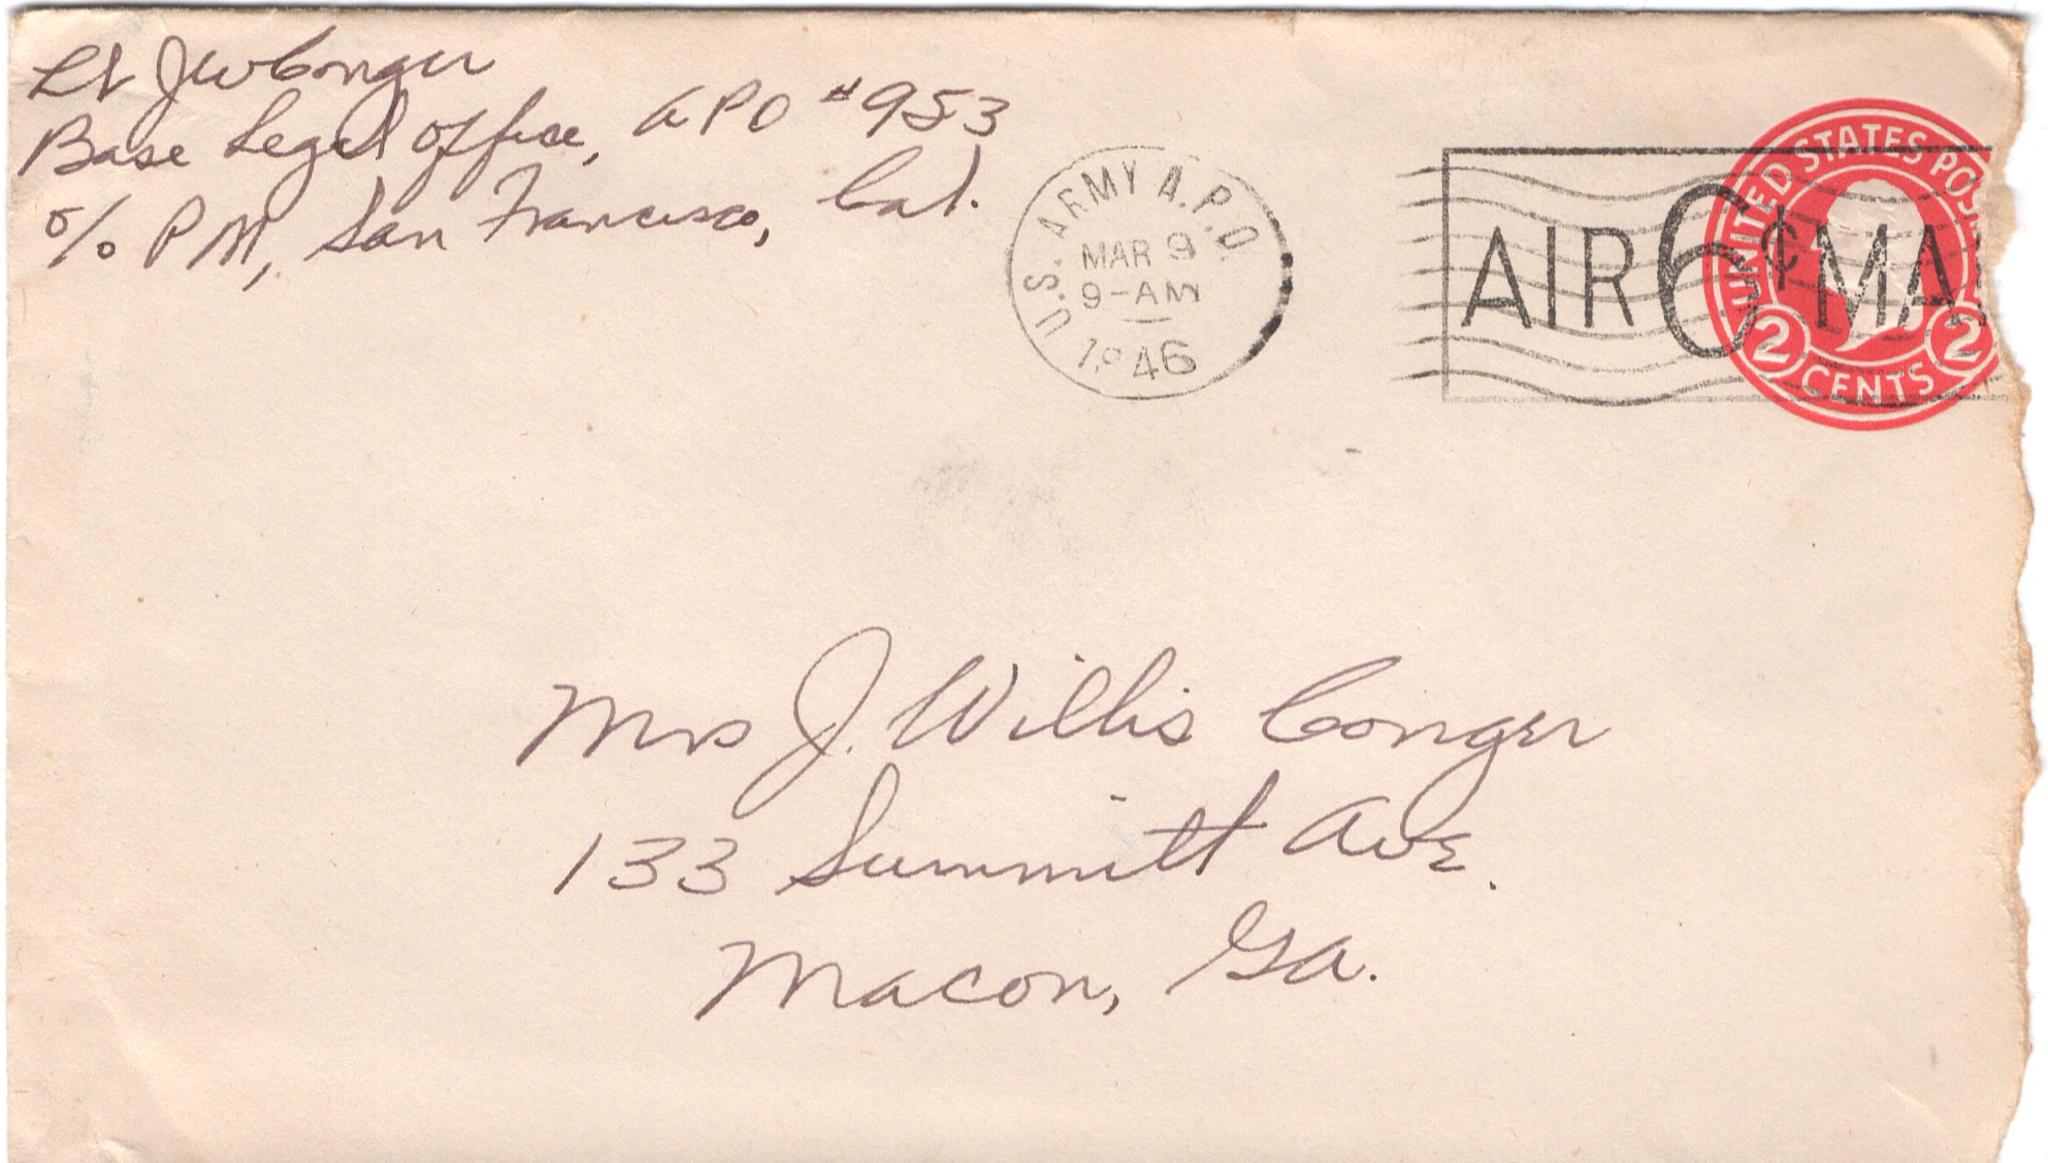 Lt JW Conger
Base Legal Office, APO #953
c/o PM, San Francisco, Cal.
U.S. ARMY A.P.O
MAR 9
9-AM
1946
UNITED STATES POS
AIR 6¢ MAI
2 CENTS 2
Mrs J. Willis Conger
133 Summitt Ave.
Macon, Ga.